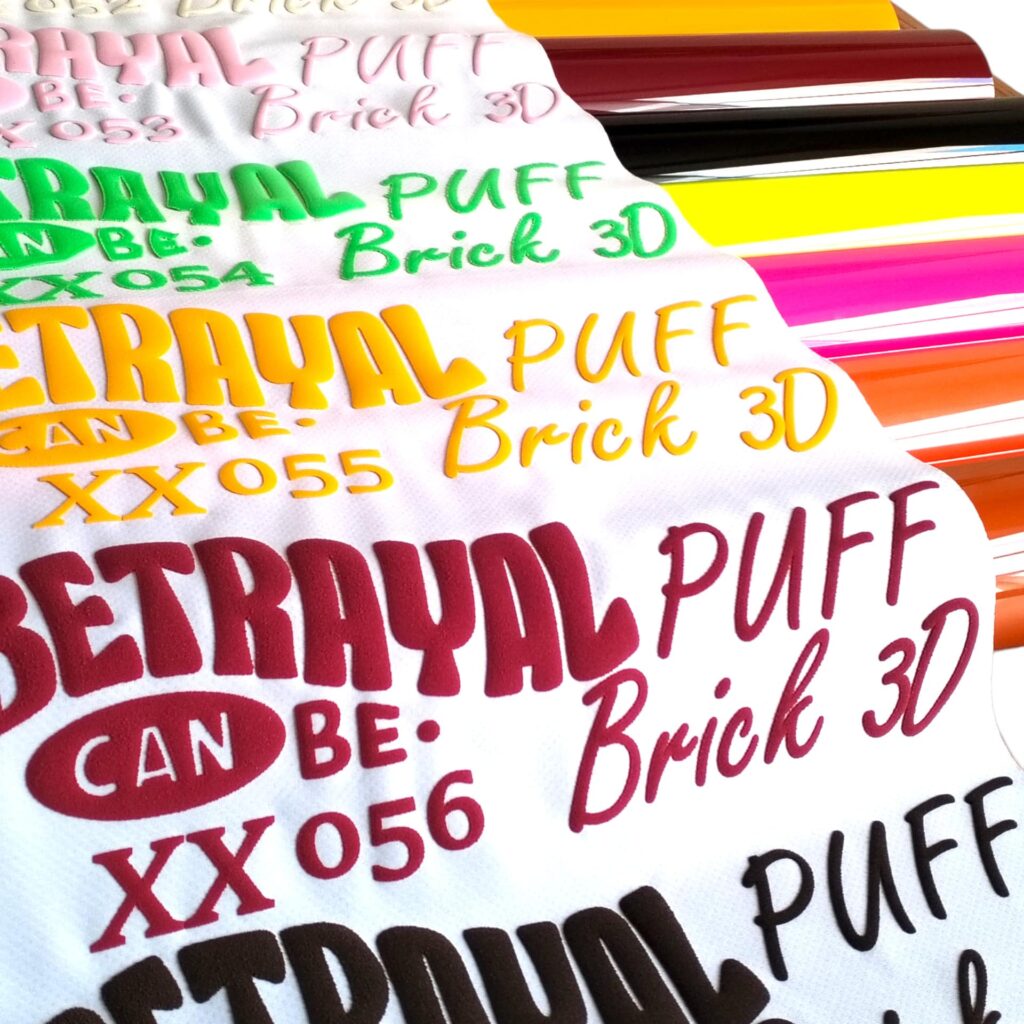 052 Brick 3D
RAYAL PUFF
BE. Brick 3D
X 053
TRAYAL PUFF
AN BE. Brick 3D
XX 054
ETRAYAL PUFF
CAN BE. Brick 3D
XX 055
BETRAYAL PUFF
CAN BE. Brick 3D
XX 056
ETRAYAL PUFF